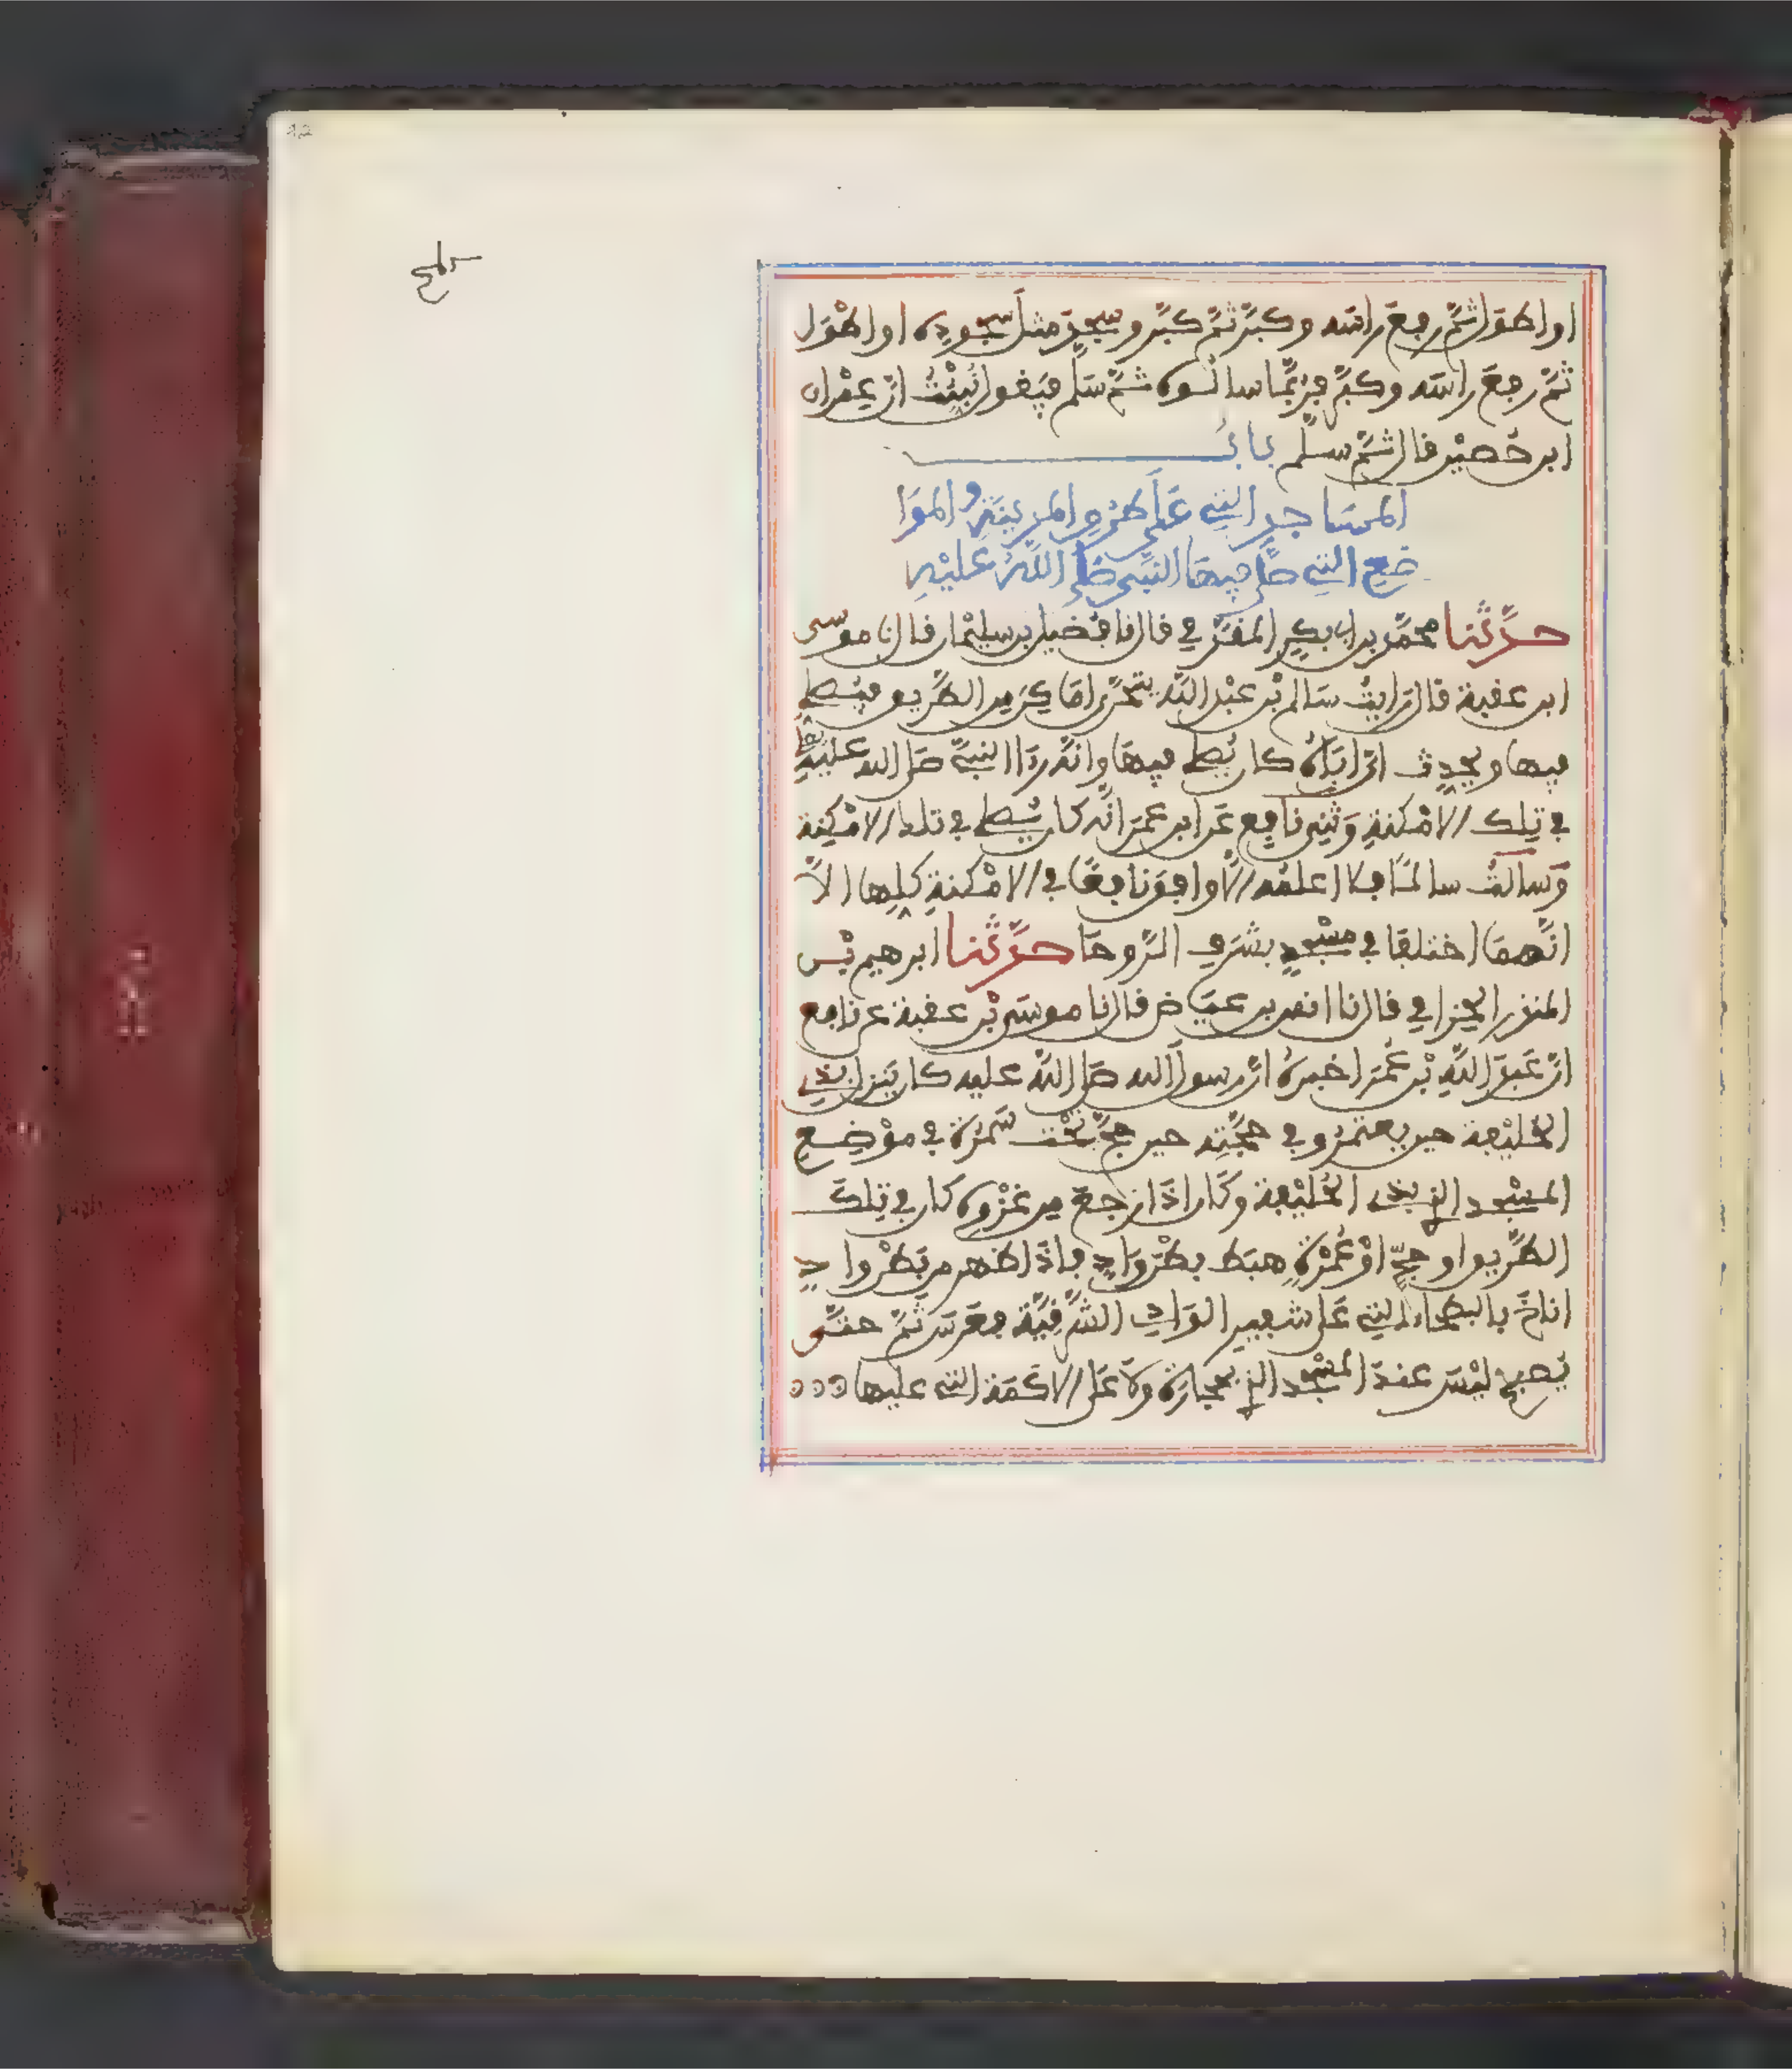 او اطول ثم رفع راسه وكبر ثم كبر وسجد مثل سجوده او اطول
ثم رفع راسه وكبر فربما سالوه ثم سلم فيقول نبئت ان عمران
ابن حصين قال ثم سلم باب
المساجد التي على طرق المدينة والموا
ضع التي صلى فيها النبي صلى الله عليه
حدثنا محمد بن ابي بكر المقدمي قال نا فضيل بن سليمان قال نا موسى
ابن عقبة قال رايت سالم بن عبد الله يتحرى اماكن من الطريق فيصلي
فيها ويحدث ان اباه كان يصلي فيها وانه راا النبي صلى الله عليه
في تلك الامكنة وثني نافع عن ابن عمر انه كان يصلي في تلك الامكنة
وسالت سالما فلا اعلمه الا وافق نافعا في الامكنة كلها الا
انهما اختلفا في مسجد بشرف الروحا حدثنا ابرهيم بن
المنذر الحزامي قال نا انس بن عياض قال نا موسى بن عقبة عن نافع
ان عبد الله بن عمر اخبره ان رسول الله صلى الله عليه كان ينزل بذي
الحليفة حين يعتمر وفي حجته حين حج تحت سمرة في موضع
المسجد الذي بذي الحليفة وكان اذا رجع من غزوة كان في تلك
الطريق او حج او عمرة هبط بطن واد فاذا ظهر من بطن واد
اناخ بالبطحاء التي على شفير الوادي الشرقية فعرس ثم حتى
يصبح ليس عند المسجد الذي بحجارة ولا على الاكمة التي عليها